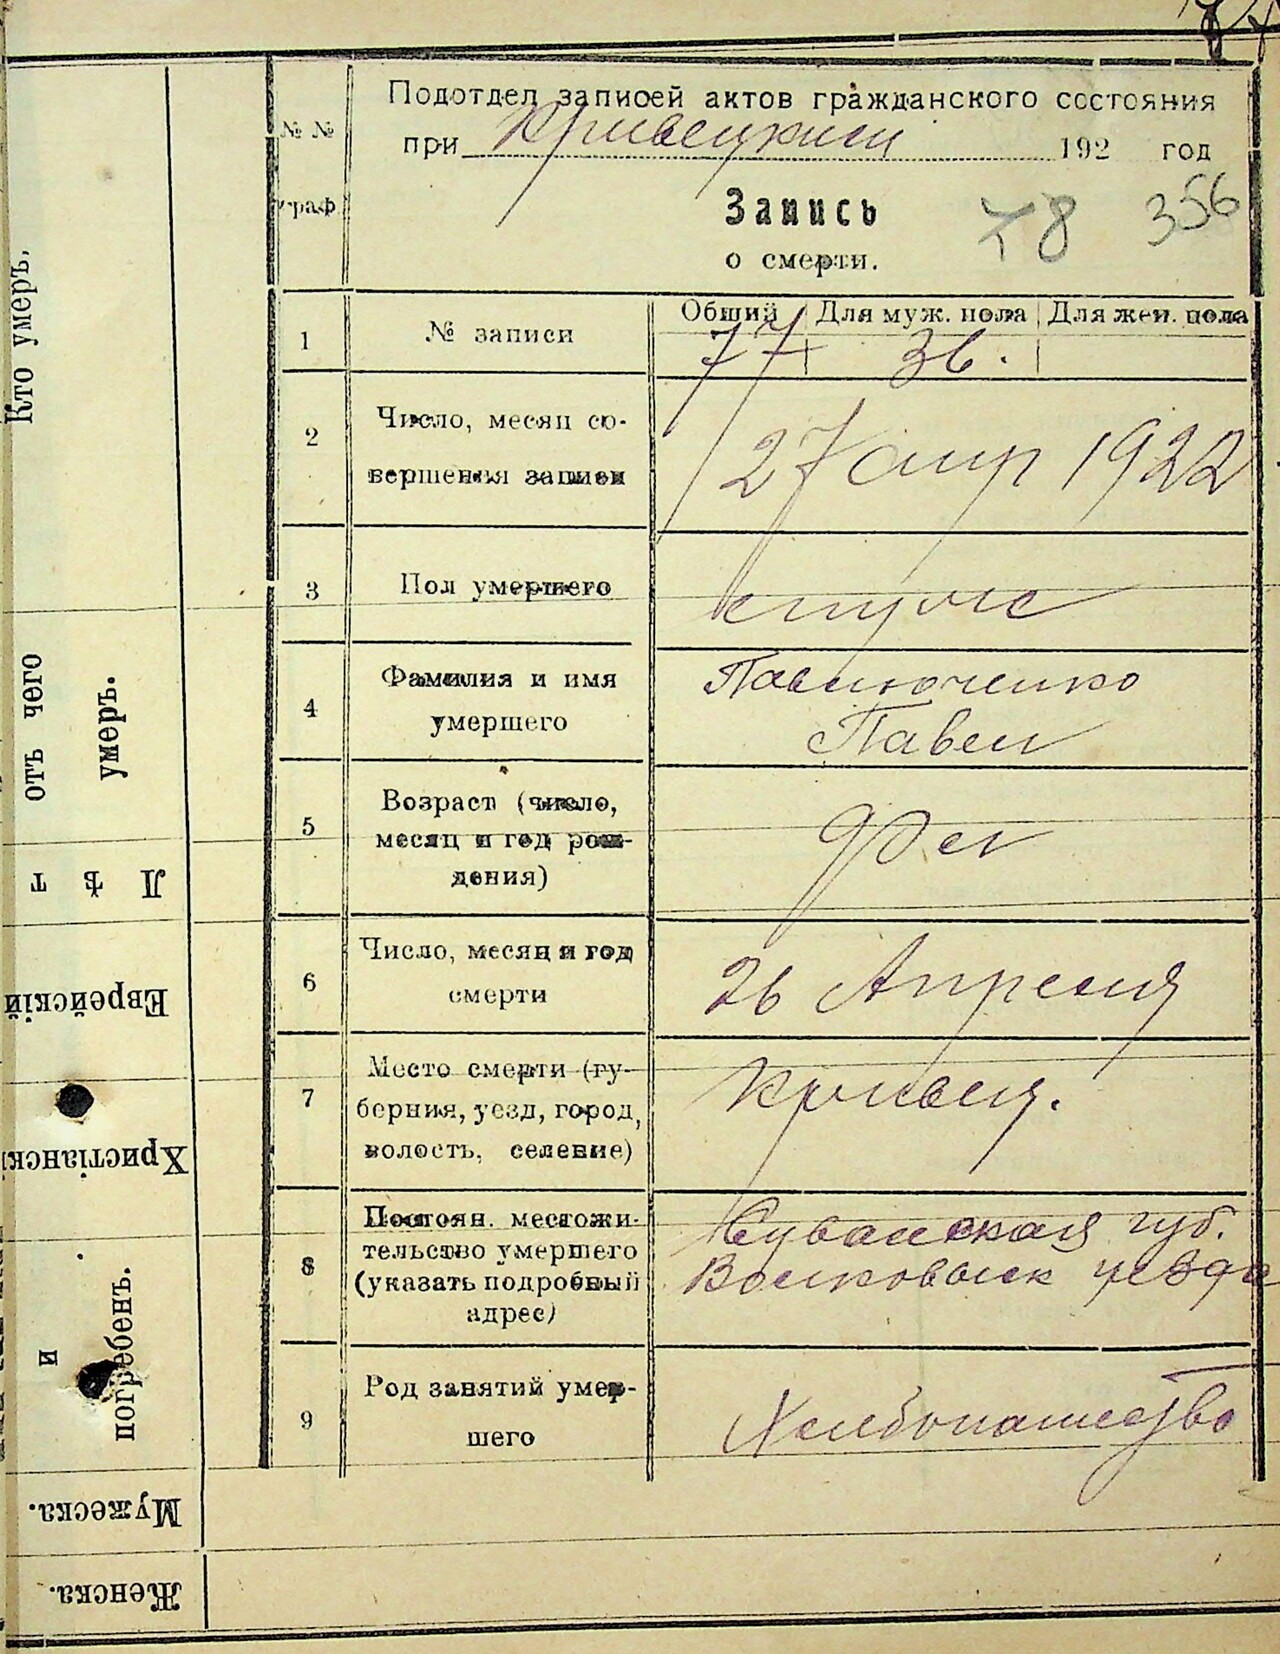 Подотдел записей актов гражданского состояния
при Кривецким 192 год
№ №
граф.
Запись
о смерти.
78 356
1 № записи
Общий Для муж. пола Для жен. пола
77 36.
2 Число, месяц со-
вершения записи
27 апр 1922
3 Пол умершего
муж
4 Фамилия и имя
умершего
Павлюченко
Павел
5 Возраст (число,
месяц и год рож-
дения)
9 лет
6 Число, месяц и год
смерти
26 Апреля
7 Место смерти (гу-
берния, уезд, город,
волость, селение)
Кривец.
8 Постоян. местожи-
тельство умершего
(указать подробный
адрес)
губ.
Волковыск уезда
9 Род занятий умер-
шего
Хлебопашество
Кто умеръ,
отъ чего
умеръ.
Лѣт
Еврейскій
Христіанск
и
погребенъ.
Мужеска.
Женска.